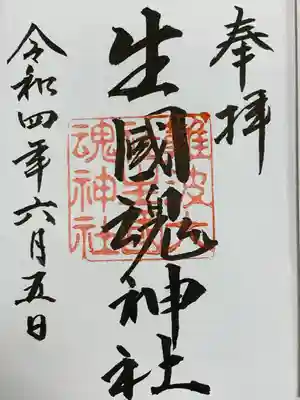 奉拝
生國魂神社
難波大
社生國
魂神社
令和四年六月五日